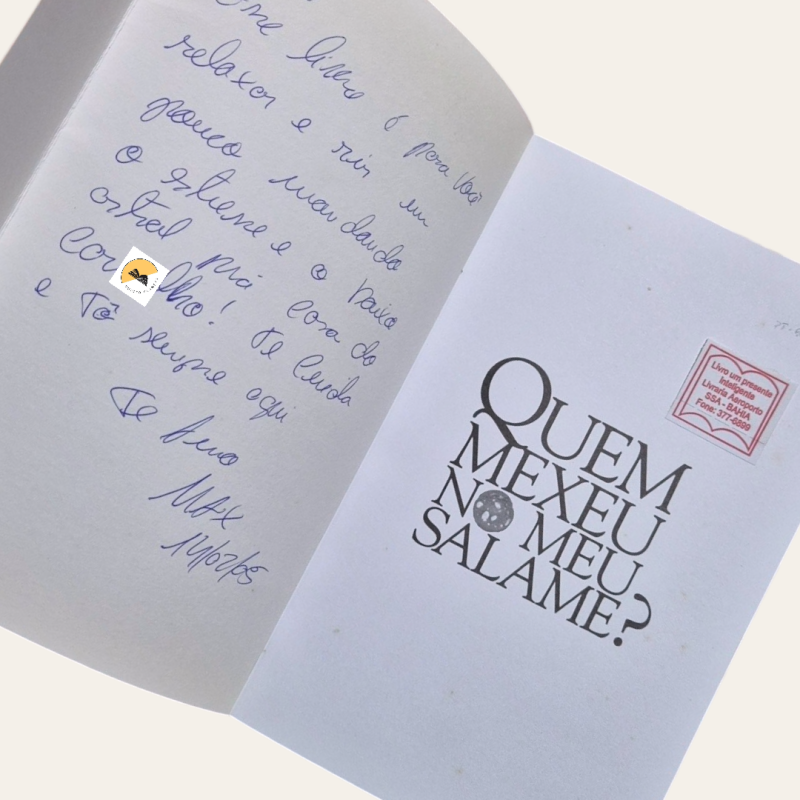 Este livro é para você
relaxar e rir um
pouco mandando
o stresse e o baixo
astral pra casa do
car lho! Te cuida
e Tô sempre aqui
Te Amo
MAX
14/02/05
QUEM
MEXEU
NO MEU
SALAME?
Livro um presente
Inteligente
Livraria Aeroporto
SSA - BAHIA
Fone: 377-6899